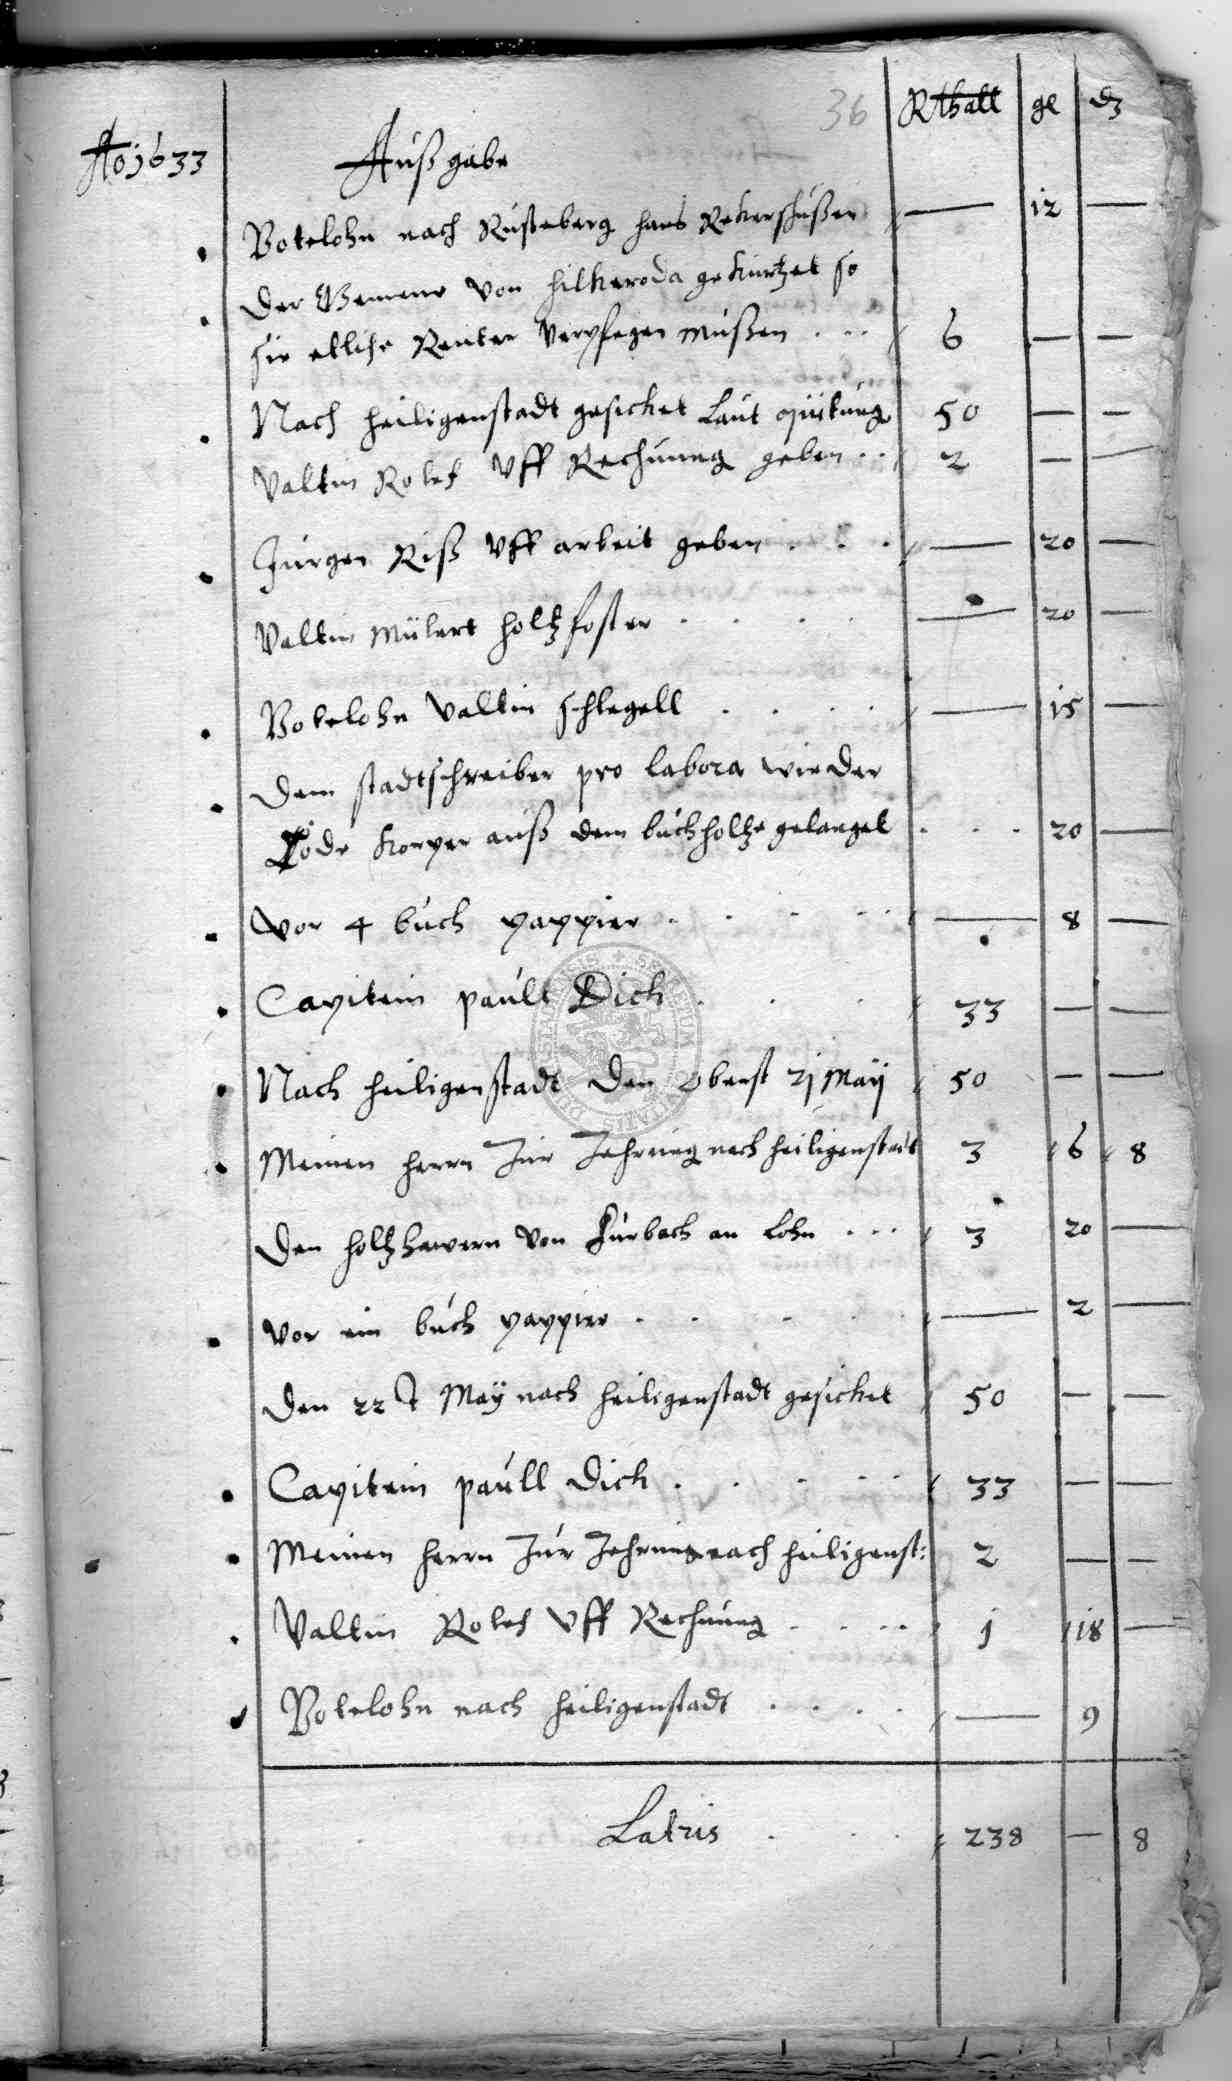 36
Rthall gl d
Ao 1633 Außgabe
Botelohn nach Rusteberg hans Rekershußen — 12 —
Der Gemene von hilkeroda gekurtzet so
sie etliche Reuter verpfegen mußen 6 — —
Nach heiligenstadt gesicket Laut quitung 50 — —
Valtin Rolef Uff Rechnung geben 2 — —
Jurgen Riß Uff arbeit geben — 20 —
Valtin Mülert holtzfoster — 20 —
Botelohn Valtin schlegell — 15 —
Dem stadtschreiber pro labora wie der
Tode Korper auß dem buchholtze gelanget 20 —
vor 4 buch pappier — 8 —
Capitein paull Dich 33 — —
Nach heiligenstadt den oberst 21 Maij 50 — —
Meinen herrn Zur Zehrung nach heiligenstadt 3 6 8
den holtzhawern von an Lohn 3 20 —
vor ein buch pappier — 2 —
den 22 t Maÿ nach heiligenstadt gesicket 50 — —
Capitein paull Dich 33 — —
Meinen herrn Zur Zehrung nach heiligenst: 2 — —
Valtin Rolef Uff Rechnung 1 18 —
Botelohn nach heiligenstadt — 9
Latris 238 — 8